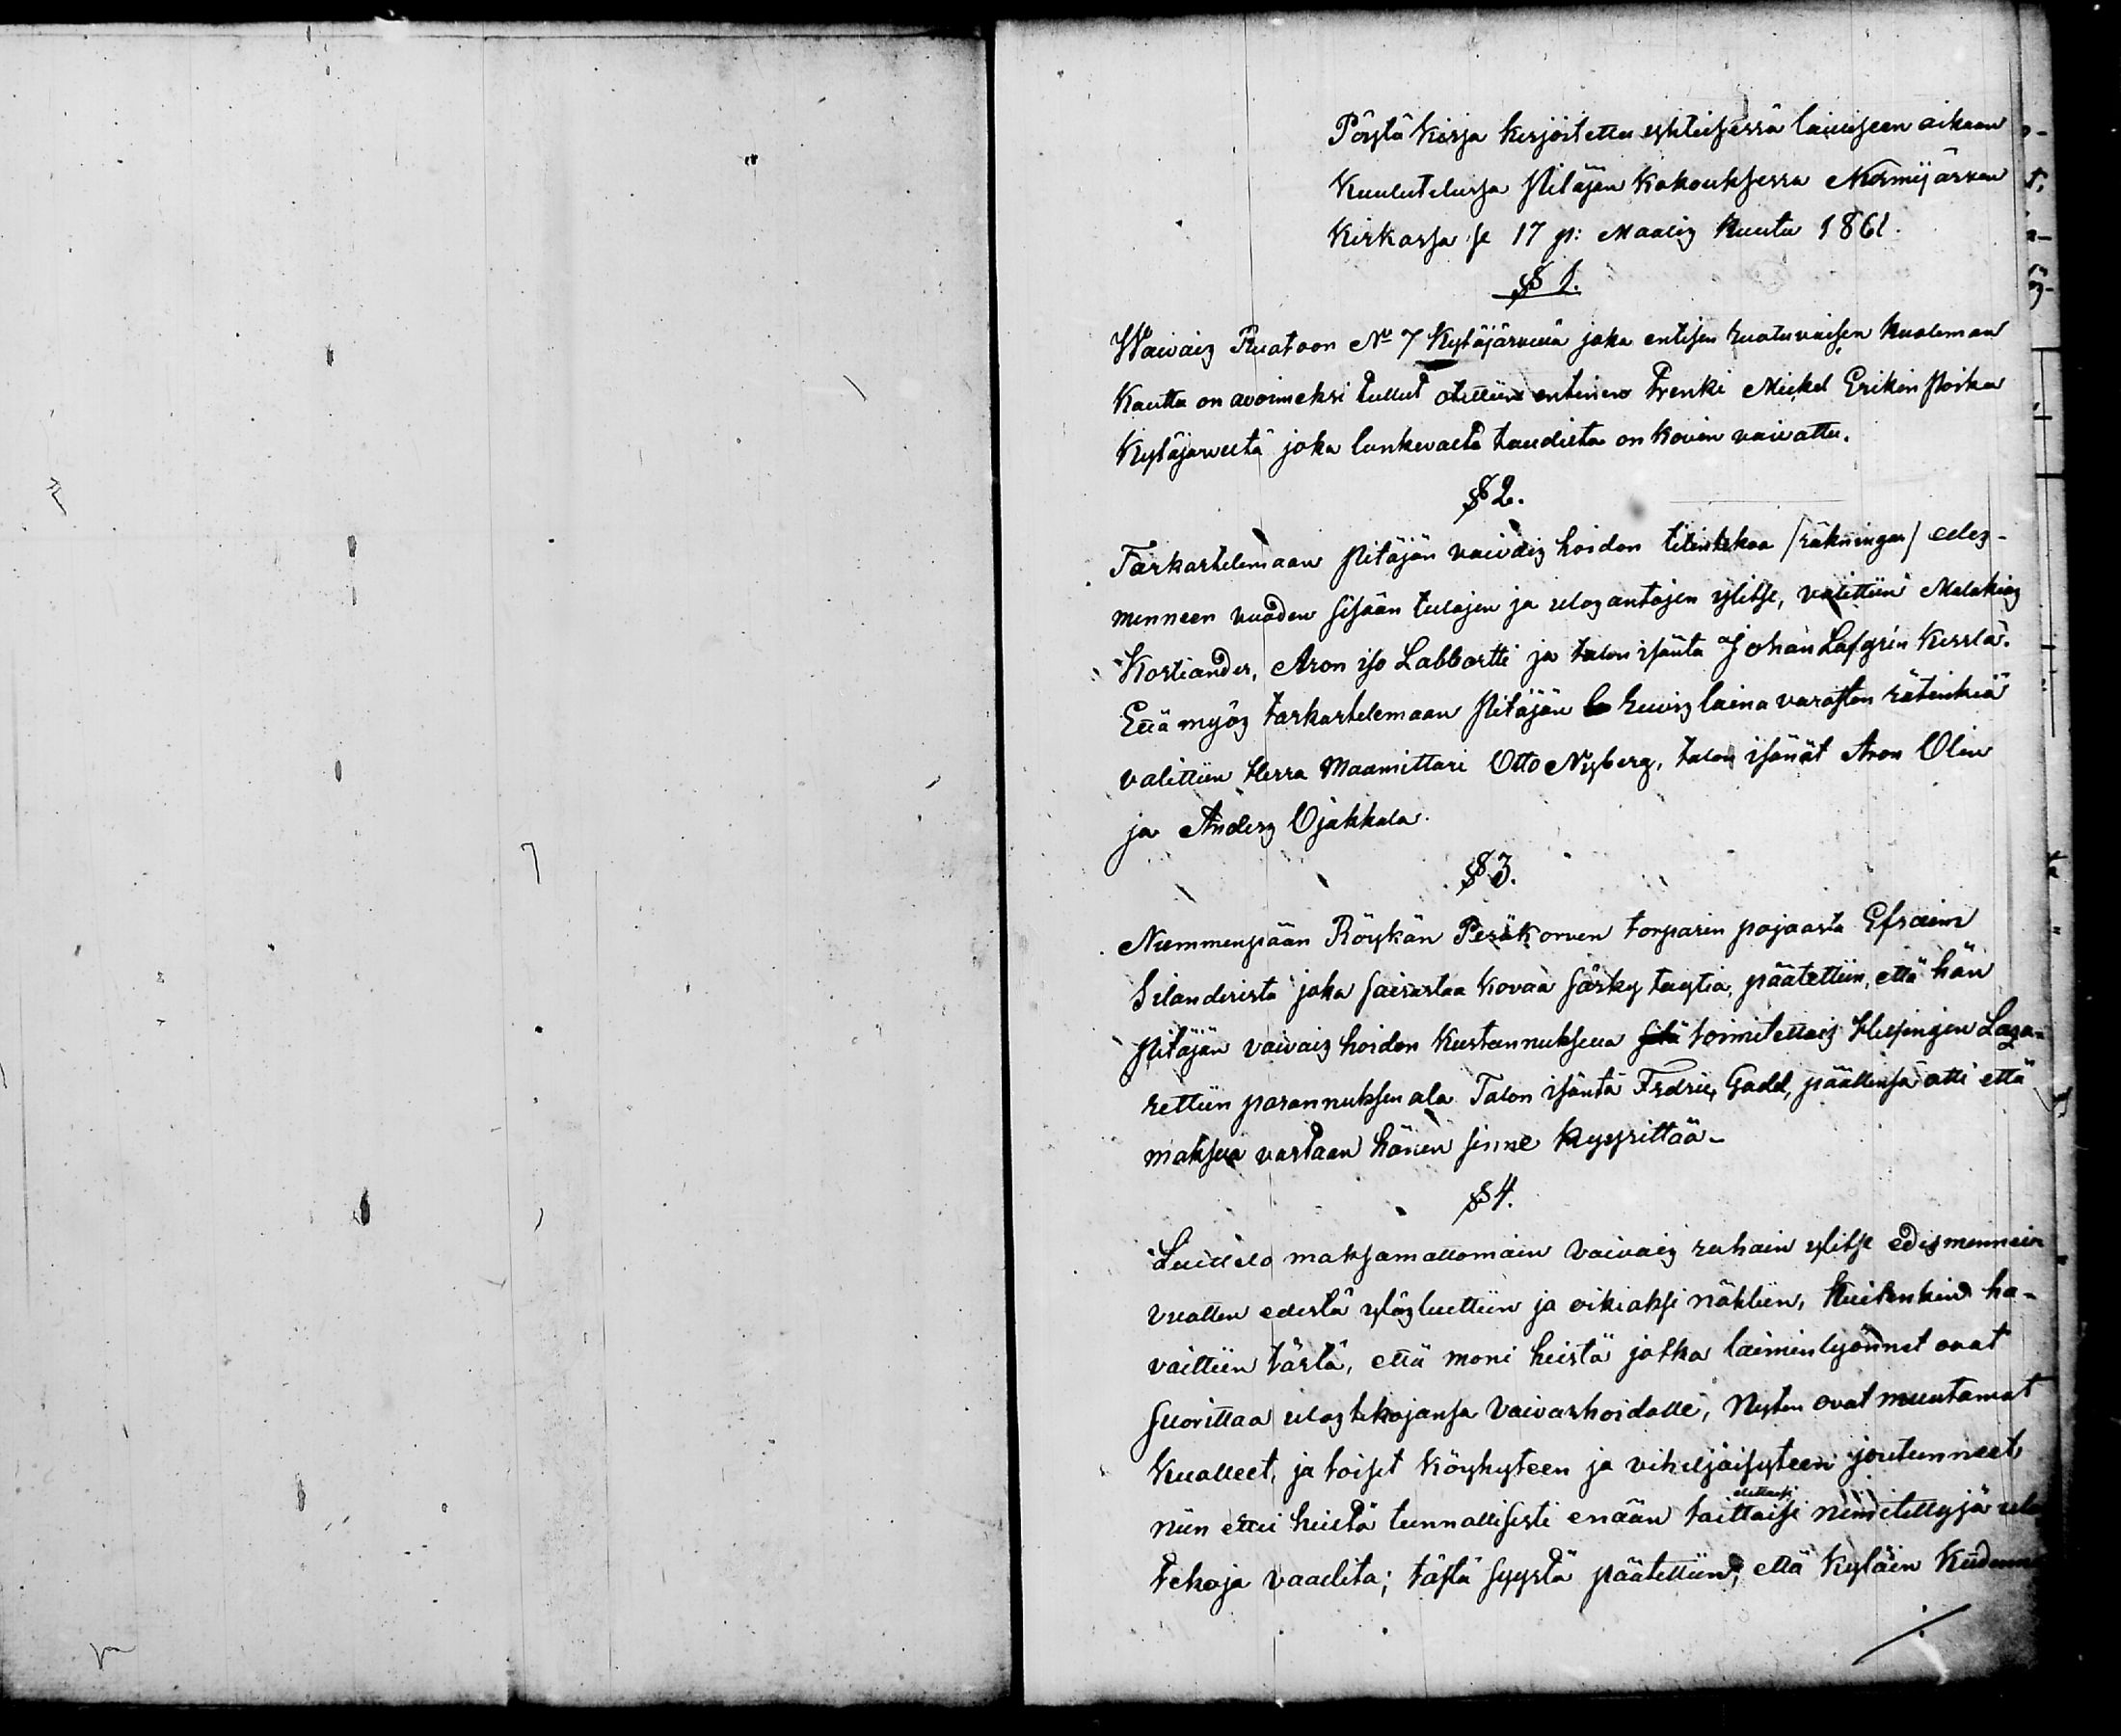 Pöytä Kirja kirjoitettu yhteisessä lailliseen aikaan
Kuulutelussa Pitäjän Kokouksessa Nurmijärven
Kirkossa se 17 p: Maalis Kuuta 1861.
§ 1.
Waivais Ruotoon No 7 Kytäjärvellä joka entisen ruotuvaisen kuoleman
Kautta on avoimeksi tullut otettiin entinen Trenki Mickel Erikin poika
Kytäjärveltä joka lankevalta taudilta on kovin vaivattu.
§ 2.
Tarkastelemaan Pitäjän vaivais hoidon tilintekoa /räkningar/ edes-
menneen vuoden sisään tulojen ja ulosantojen ylitse, valittiin Malakias
Kostiander, Aron iso Labbartti ja talon isäntä Johan Lofgrén Kisslä.
Että myös tarkastelemaan Pitäjän Ruis laina varaston rätinkiä
valittiin Herra Maamittari Otto Nyberg, talon isänät Aron Olin
ja Anders Ojakkala.
§ 3.
Nummenpään Röykän Peräkorven torparin pojasta Efraim
Silanderista joka sairastaa kovaa särky tautia, päätettiin, että hän
Pitäjän vaivais hoidon kustannuksella toimitettais Helsingin Laza-
rettiin parannuksen ala. Talon isäntä Fredric Gadd, päällensä otti että
maksua vastaan hänen sinne kyyrittää-
§ 4.
Luettelo maksamattomain vaivais rahain ylitse edismennein
vuotten edestä ylösluettiin ja oikiaksi näktiin, kuitenkin ha-
vaittiin tästä, että moni heistä jotka laiminlyönnet ovat
suorittaa ulostekojansa Vaivashoidolle, Nyten ovat muutamat
Kuolleet, ja toiset köyhyteen ja viheljäisyteen joutunneet,
niin ettei heiltä tunnollisesti enään taittaisi nimitettyjä ulos
tekoja vaadita; tästä syystä päätettiin, että Kyläin